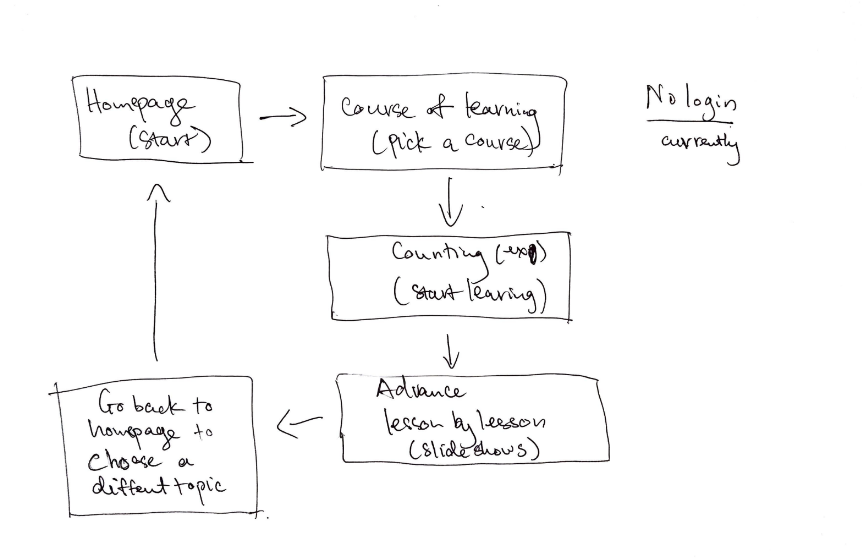 Homepage
(start)
Course of learning
(pick a course)
No login
currently
Counting (exp)
(start learing)
Advance
lesson by lesson
(slideshows)
Go back to
homepage to
choose a
diffent topic